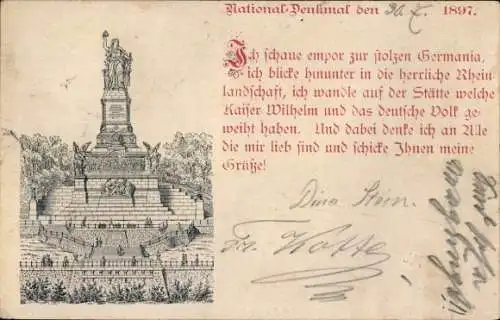 National-Denkmal den 30. 7. 1897.
Ich schaue empor zur stolzen Germania,
ich blicke hinunter in die herrliche Rhein
landschaft, ich wandle auf der Stätte welche
Kaiser Wilhelm und das deutsche Volk ge-
weiht haben. Und dabei denke ich an Alle
die mir lieb sind und schicke Ihnen meine
Grüße!
Dina Stein.